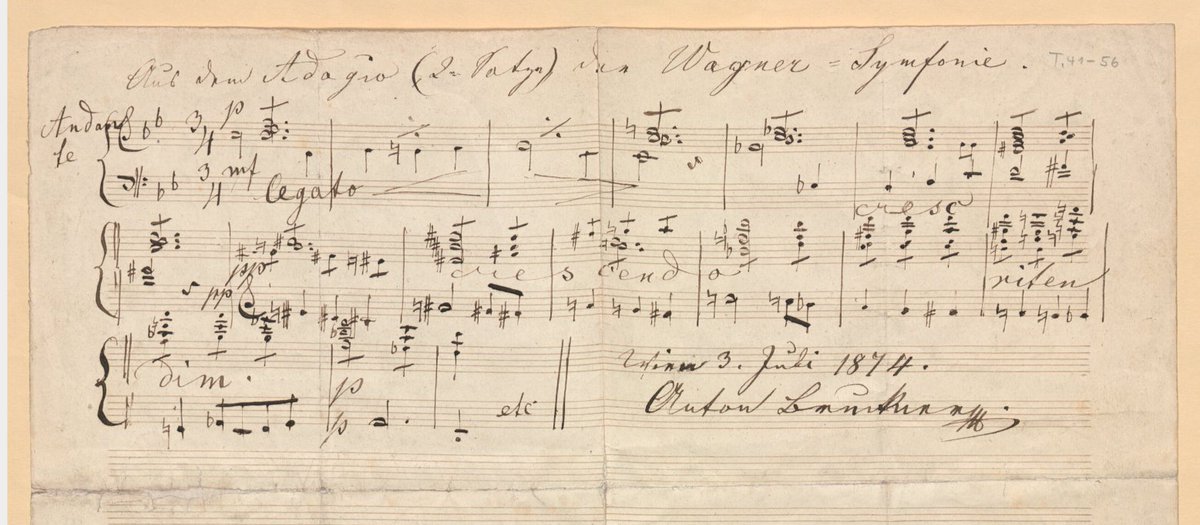 Aus dem Adagio (2r Satze) der Wagner = Symfonie. T. 41-56
Andante
3/4 p
3/4 mf legato
cresc
pp
pp
crescendo
riten
dim.
p
p
etc
Wien 3. Juli 1874.
Anton Bruckner